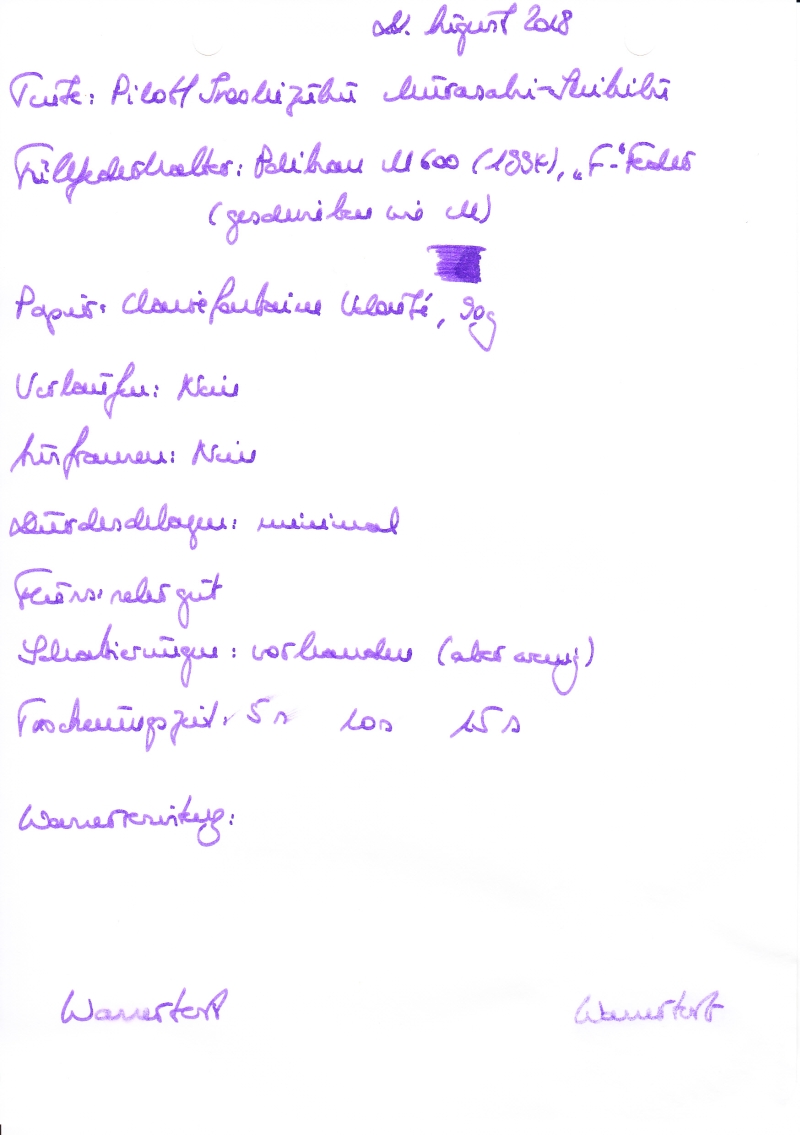 21. August 2018
Tinte: Pilot Iroshizuku Murasaki-Shikibu
Füllfederhalter: Pelikan M 600 (1997), „F-"Feder
(geschrieben wie M)
Papier: Clairefontaine Velouté, 90g
Verlaufen: Nein
Ausfransen: Nein
Durchschlagen: minimal
Fluss: sehr gut
Schattierungen: vorhanden (aber wenig)
Trocknungszeit: 5 s 10 s 15 s
Wasserfestigkeit:
Wassertest Wassertest